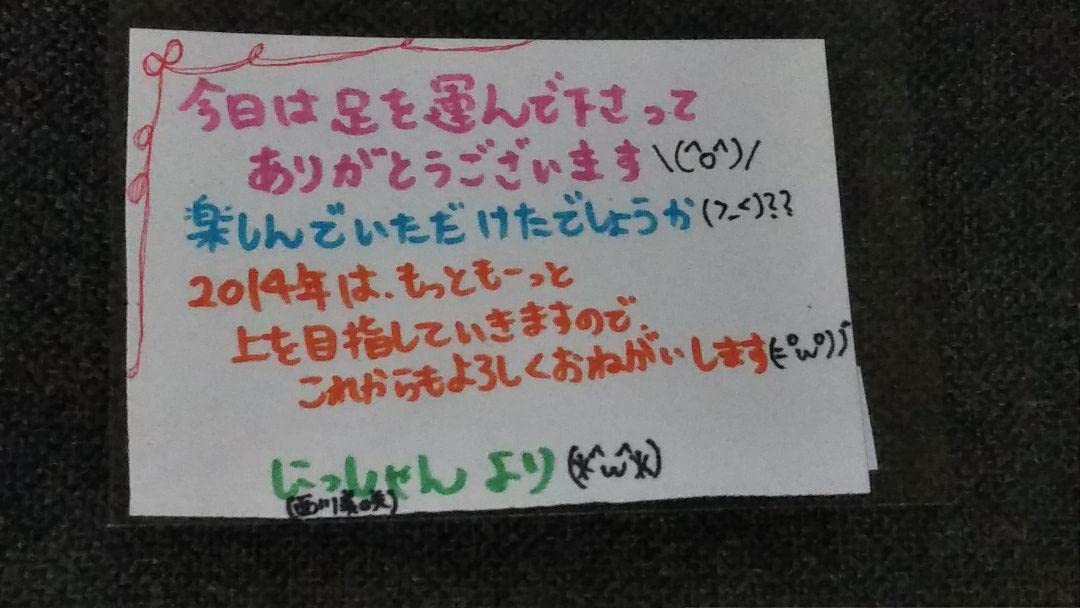 今日は足を運んで下さって
ありがとうございます\(^o^)/
楽しんでいただけたでしょうか(>_<)??
2014年は、もっともーっと
上を目指していきますので、
これからもよろしくおねがいします(=゚ω゚)ﾉ
にっしゃんより(*^ω^*)